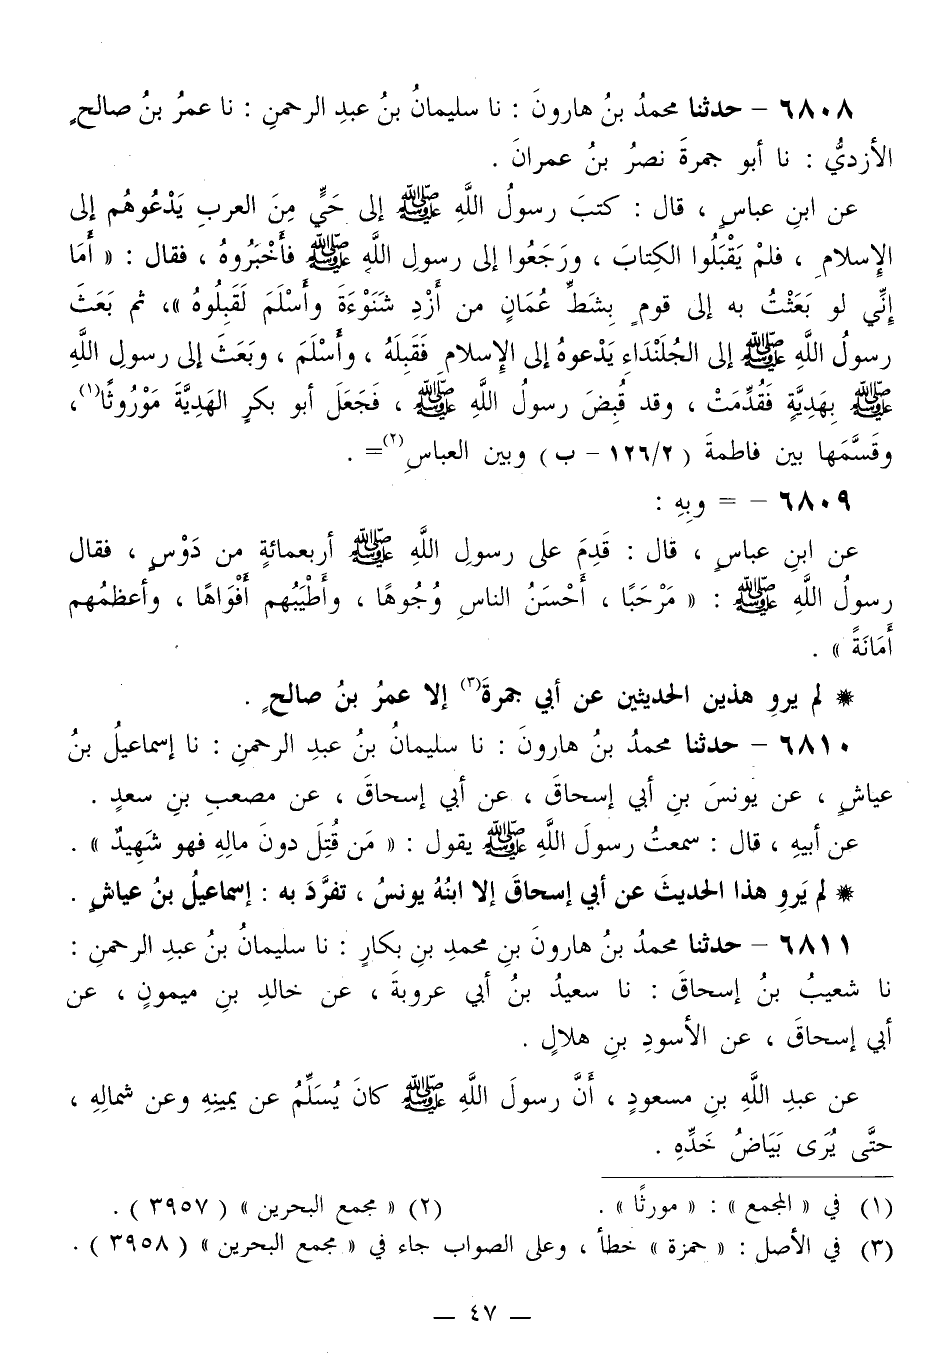 ٦٨٠٨ – حدثنا محمدُ بنُ هارونَ : نا سليمانُ بنُ عبدِ الرحمنِ : نا عمرُ بنُ صالحٍ
الأزديُّ : نا أبو جمرةَ نصرُ بنُ عمرانَ .
عن ابنِ عباسٍ ، قال : كتبَ رسولُ اللَّهِ ﷺ إلى حَيٍّ مِنَ العربِ يَدْعُوهُم إلى
الإِسلامِ ، فلمْ يَقْبَلُوا الكِتابَ ، ورَجَعُوا إلى رسولِ اللَّهِ ﷺ فأَخْبَرُوهُ ، فقال : « أَمَا
إِنِّي لو بَعَثْتُ به إلى قومٍ بِشَطِّ عُمَانٍ من أَزْدِ شَنَوْءَةَ وأَسْلَمَ لَقَبِلُوهُ »، ثم بَعَثَ
رسولُ اللَّهِ ﷺ إلى الجُلَنْدَاءِ يَدْعوهُ إلى الإِسلامِ فقَبِلَهُ ، وأَسْلَمَ ، وبَعَثَ إلى رسولِ اللَّهِ
ﷺ بِهَدِيَّةٍ فَقُدِّمَتْ ، وقد قُبِضَ رسولُ اللَّهِ ﷺ ، فَجَعَلَ أبو بكرٍ الهَدِيَّةَ مَوْرُوثًا(١)،
وقَسَّمَها بين فاطمةَ ( ١٢٦/٢ – ب ) وبين العباسِ(٢)= .
٦٨٠٩ – = وبِهِ :
عن ابنِ عباسٍ ، قال : قَدِمَ على رسولِ اللَّهِ ﷺ أربعمائةٍ من دَوْسٍ ، فقال
رسولُ اللَّهِ ﷺ : « مَرْحَبًا ، أَحْسَنُ الناسِ وُجُوهًا ، وأَطْيَبُهم أَفْوَاهًا ، وأعظمُهم
أَمَانَةً » .
* لم يروِ هذين الحديثين عن أبي جمرةَ(٣) إلا عمرُ بنُ صالحٍ .
٦٨١٠ – حدثنا محمدُ بنُ هارونَ : نا سليمانُ بنُ عبدِ الرحمنِ : نا إسماعيلُ بنُ
عياشٍ ، عن يونسَ بنِ أبي إسحاقَ ، عن أبي إسحاقَ ، عن مصعبِ بنِ سعدٍ .
عن أبيهِ ، قال : سمعتُ رسولَ اللَّهِ ﷺ يقول : « مَن قُتِلَ دونَ مالِهِ فهو شَهِيدٌ » .
* لم يَروِ هذا الحديثَ عن أبي إسحاقَ إلا ابنُهُ يونسُ ، تفرَّدَ به : إسماعيلُ بنُ عياشٍ .
٦٨١١ – حدثنا محمدُ بنُ هارونَ بنِ محمدِ بنِ بكارٍ : نا سليمانُ بنُ عبدِ الرحمنِ :
نا شعيبُ بنُ إسحاقَ : نا سعيدُ بنُ أبي عروبةَ ، عن خالدِ بنِ ميمونٍ ، عن
أبي إسحاقَ ، عن الأسودِ بنِ هلالٍ .
عن عبدِ اللَّهِ بنِ مسعودٍ ، أنَّ رسولَ اللَّهِ ﷺ كانَ يُسَلِّمُ عن يمينِهِ وعن شمالِهِ ،
حتَّى يُرَى بَيَاضُ خَدِّهِ .
(١) في « المجمع » : « مورثًا » . (٢) « مجمع البحرين » ( ٣٩٥٧ ) .
(٣) في الأصل : « حمزة » خطأ ، وعلى الصواب جاء في « مجمع البحرين » ( ٣٩٥٨ ) .
– ٤٧ –